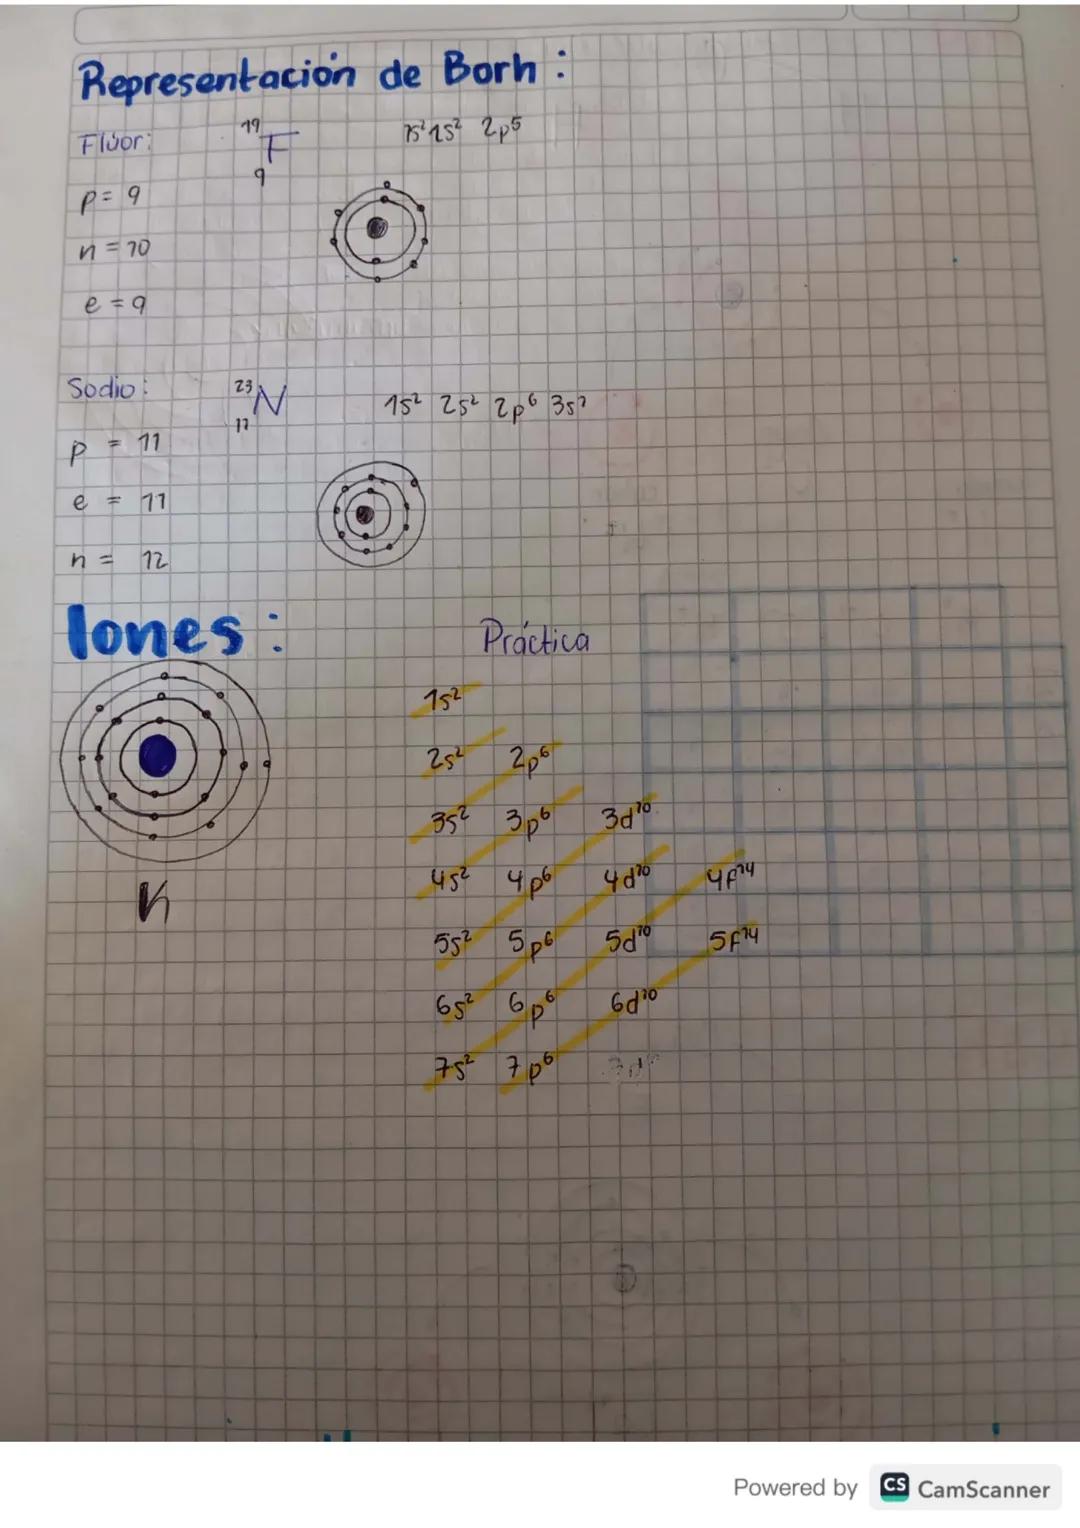 Representación de Borh :
Flúor: 19 F 9 1s² 1s² 2p⁵
p = 9
n = 10
e = 9
Sodio: 23 N 11 1s² 2s² 2p⁶ 3s¹
p = 11
e = 11
n = 12
Iones :
Práctica
1s²
2s² 2p⁶
3s² 3p⁶ 3d¹⁰
4s² 4p⁶ 4d¹⁰ 4f¹⁴
5s² 5p⁶ 5d¹⁰ 5f¹⁴
6s² 6p⁶ 6d¹⁰
7s² 7p⁶
K
Powered by CS CamScanner